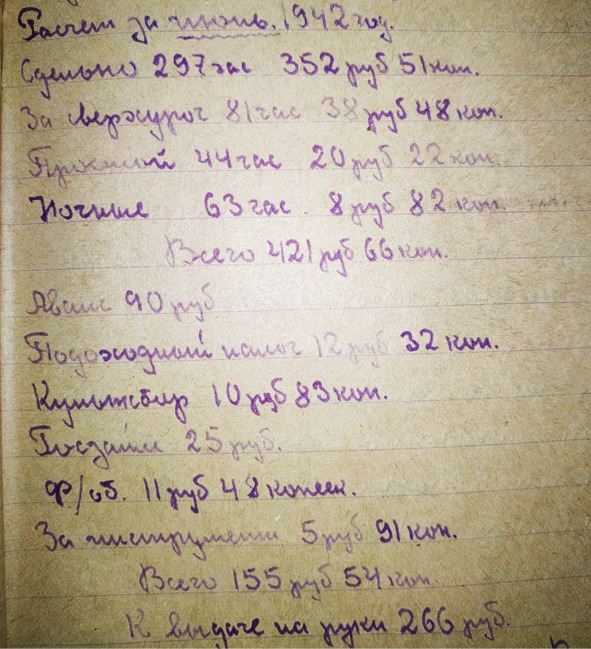 Расчет за июнь. 1942 год.
Сдельно 297 час 352 руб 51 коп.
За сверхуроч 81 час 38 руб 48 коп.
Простой 44 час 20 руб 22 коп.
Ночные 63 час. 8 руб 82 коп.
Всего 421 руб 66 коп.
Аванс 90 руб
Подоходный налог 12 руб 32 коп.
Культсбор 10 руб 83 коп.
Госзайм 25 руб.
Ф/об. 11 руб 48 копеек.
За инструмент 5 руб 91 коп.
Всего 155 руб 54 коп.
К выдаче на руки 266 руб.